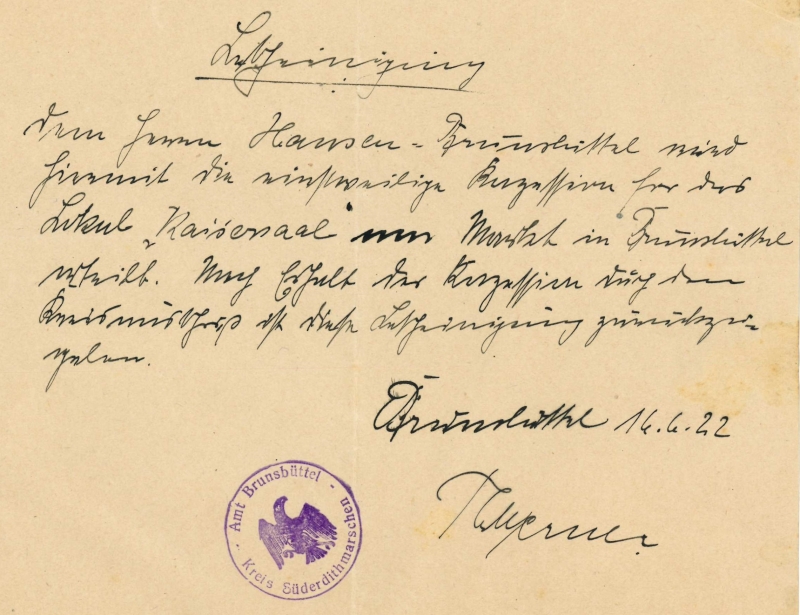 Bescheinigung
Dem Herrn Hansen-Brunsbüttel wird
hiermit die einstweilige Konzession for das
Lokal "Kaisersaal am Markt in Brunsbüttel
erteilt. Nach Erhalt der Konzession durch den
Kreisausschuß ist diese Bescheinigung zurückzu-
geben.
Brunsbüttel 16.6.22
Amt Brunsbüttel
Kreis Süderdithmarschen